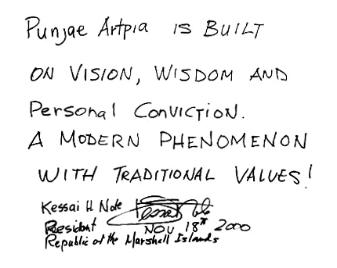 Punjae Artpia IS BUILT
ON VISION, WISDOM AND
Personal CONVICTION.
A MODERN PHENOMENON
WITH TRADITIONAL VALUES!
Kessai H Note
President NOV 18th 2000
Republic of the Marshall Islands